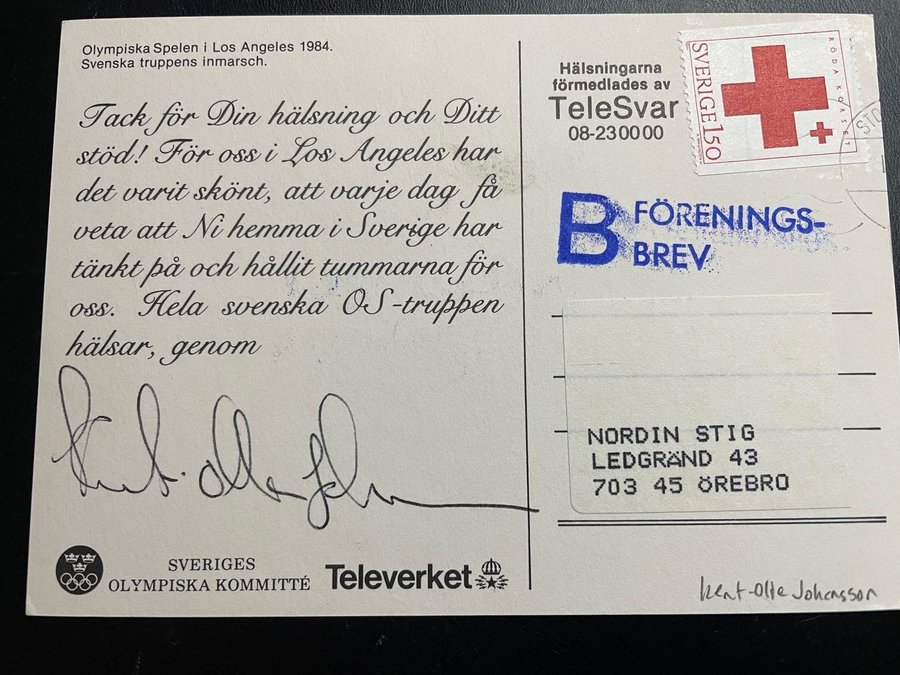 Olympiska Spelen i Los Angeles 1984.
Svenska truppens inmarsch.
Tack för Din hälsning och Ditt
stöd! För oss i Los Angeles har
det varit skönt, att varje dag få
veta att Ni hemma i Sverige har
tänkt på och hållit tummarna för
oss. Hela svenska OS-truppen
hälsar, genom
Kent-Olle Johansson
SVERIGES
OLYMPISKA KOMMITTÉ
Televerket
Hälsningarna
förmedlades av
TeleSvar
08-23 00 00
SVERIGE 150
RÖDA KORSET
STO
B FÖRENINGS-
BREV
NORDIN STIG
LEDGRÄND 43
703 45 ÖREBRO
Kent-Olle Johansson